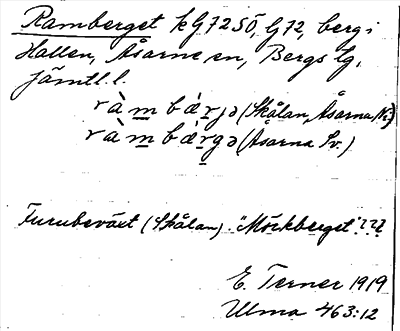 Ramberget k G72SÖ, G72, berg i
Hallen, Åsarne sn, Bergs tg,
Jämtl. l.
ràm bǽrjə (Skålan, Åsarna N.)
ràm bǽrgə (Åsarna Sv.)
Furubeväxt (Skålan). "Mörkberget"???
E. Terner 1919
Ulma 463:12